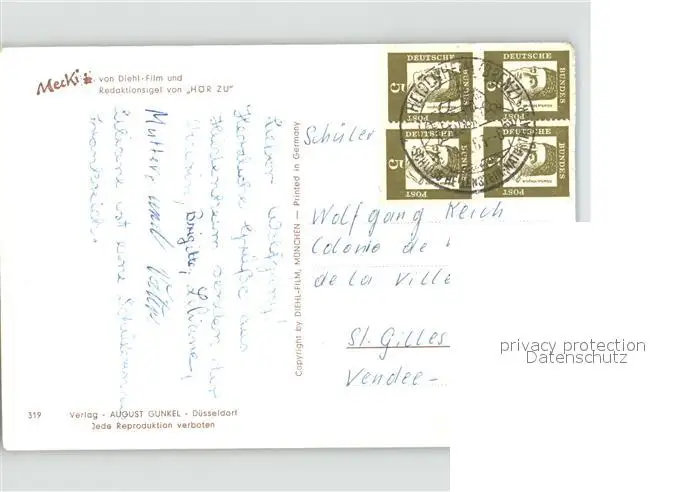 Mecki
von Diehl-Film und
Redaktionsigel von „HÖR ZU"
Lieber Wolfgang!
Herzliche Grüße aus
Heidenheim senden dir
Brigitte, Liliane,
Mutter und Vater
Liliane ist eine Schülerin
Frankreich.
Copyright by DIEHL-FILM, MÜNCHEN — Printed in Germany
DEUTSCHE
BUNDES
POST
5
DEUTSCHE
BUNDES
POST
5
DEUTSCHE
BUNDES
POST
5
DEUTSCHE
BUNDES
POST
5
HEIDENHEIM (BRENZ)
Schüler
Wolfgang Reich
Colonie de
de la Ville
St. Gilles
Vendee-
privacy protection
Datenschutz
319 Verlag - AUGUST GUNKEL - Düsseldorf
Jede Reproduktion verboten